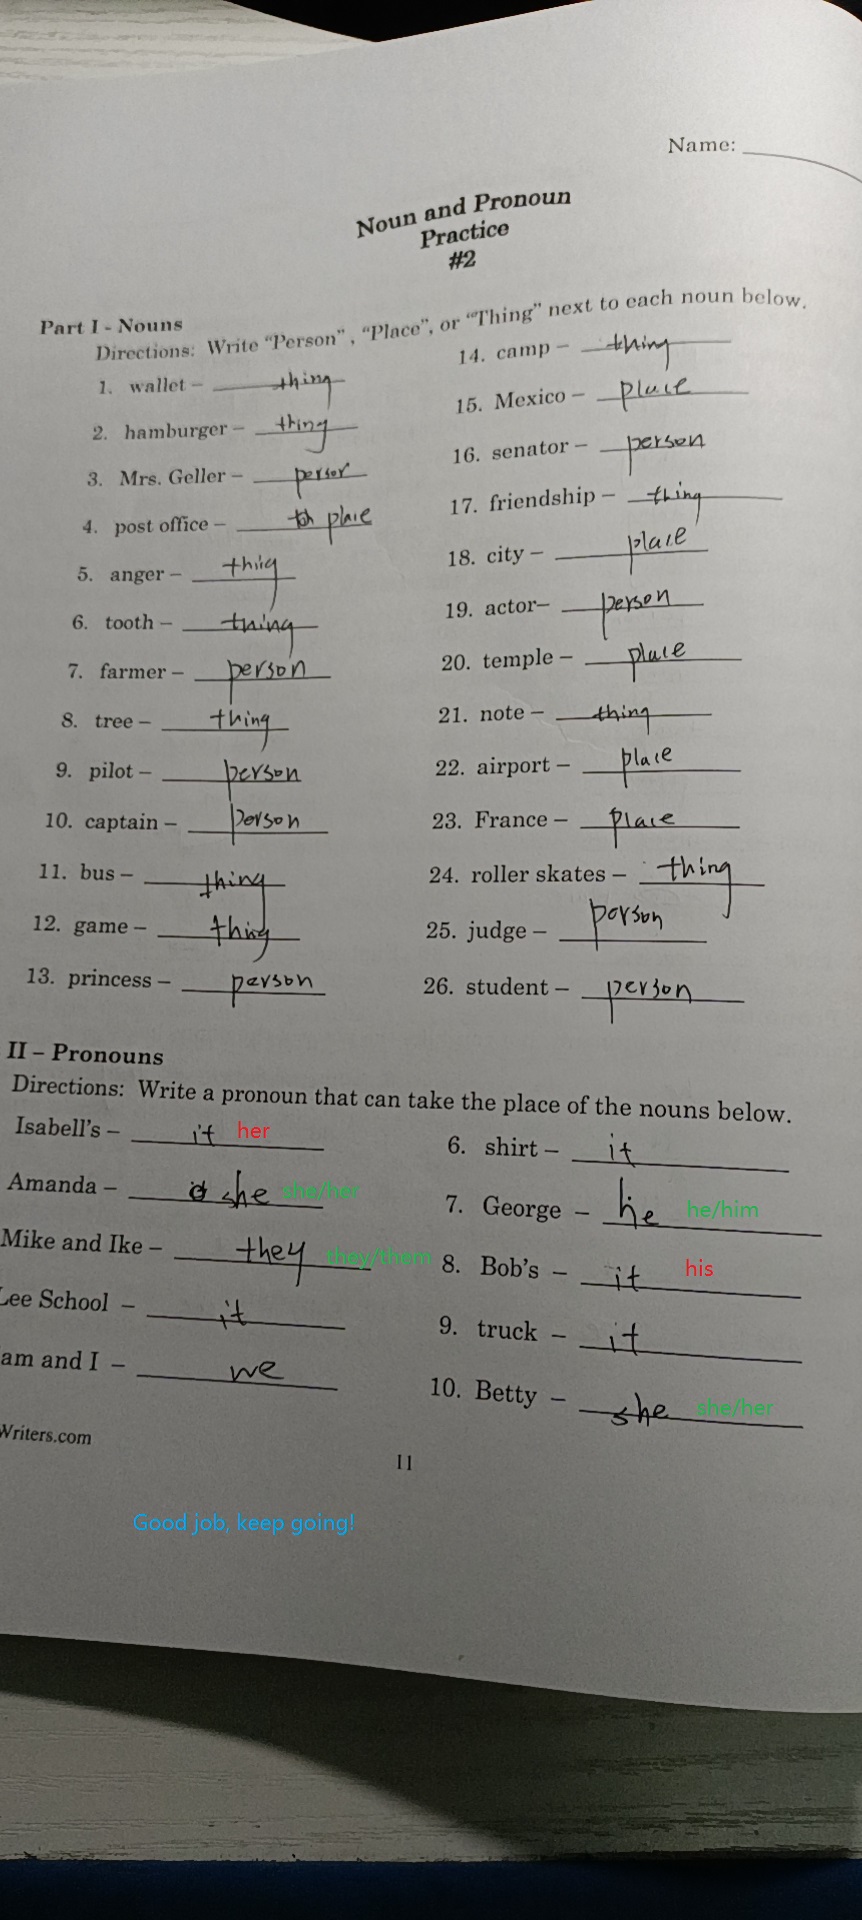 Name:
Noun and Pronoun
Practice
#2
Part I - Nouns
Directions: Write “Person”, “Place”, or “Thing” next to each noun below.
1. wallet – thing
2. hamburger – thing
3. Mrs. Geller – person
4. post office – place
5. anger – thing
6. tooth – thing
7. farmer – person
8. tree – thing
9. pilot – person
10. captain – person
11. bus – thing
12. game – thing
13. princess – person
14. camp – thing
15. Mexico – place
16. senator – person
17. friendship – thing
18. city – place
19. actor– person
20. temple – place
21. note – thing
22. airport – place
23. France – place
24. roller skates – thing
25. judge – person
26. student – person
II – Pronouns
Directions: Write a pronoun that can take the place of the nouns below.
Isabell's – it her
Amanda – she she/her
Mike and Ike – they they/them
Lee School – it
am and I – we
6. shirt – it
7. George – he he/him
8. Bob's – it his
9. truck – it
10. Betty – she she/her
Writers.com
11
Good job, keep going!